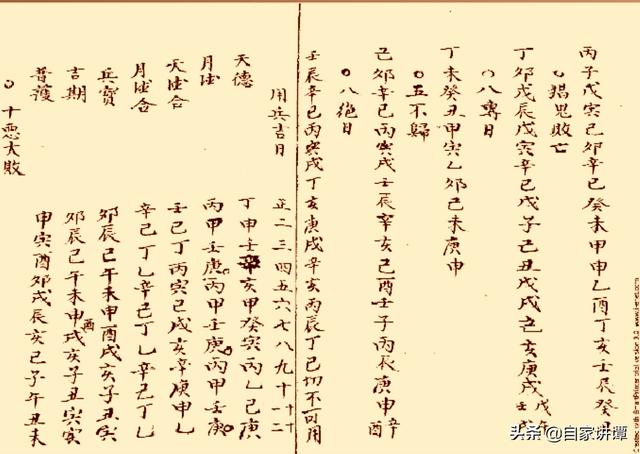 丙子戊寅己卯辛巳癸未甲申乙酉丁亥壬辰癸巳
○猖鬼敗亡
丁卯戊辰戊寅辛巳戊子己丑戊戌己亥庚戌戊午壬戌
○八專日
丁未癸丑甲寅乙卯己未庚申
○五不歸
己卯辛巳丙寅戌壬辰辛亥己酉壬子丙辰庚申辛酉
○八絕日
壬辰辛巳丙寅戌丁亥庚戌辛亥丙辰丁巳切不可用
用兵吉日
正二三四五六七八九十十一十二
天德 丁申壬辛亥甲癸寅丙乙己庚
月德 丙甲壬庚丙甲壬庚丙甲壬庚
天德合 壬巳丁丙寅己戌亥辛庚申乙
月德合 辛己丁乙辛己丁乙辛己丁乙
兵寶 卯辰巳午未申酉戌亥子丑寅
吉期 卯辰巳午未申酉戌亥子丑寅寅
普護 申寅酉卯戌辰亥巳子午丑未
○十惡大敗
头条 @自家讲谭